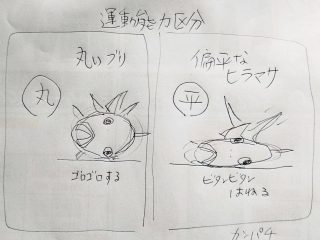 運動能力区分
丸いブリ
丸
ゴロゴロする
偏平な
ヒラマサ
平
ビタンビタン
はねる
カンパチ